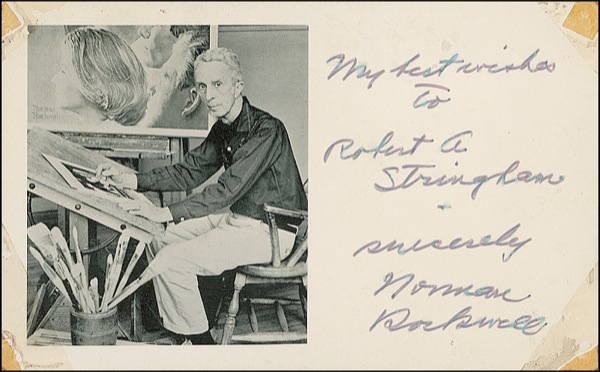 Norman
Rockwell
My best wishes
To
Robert A
Stringham
-
sincerely
Norman
Rockwell